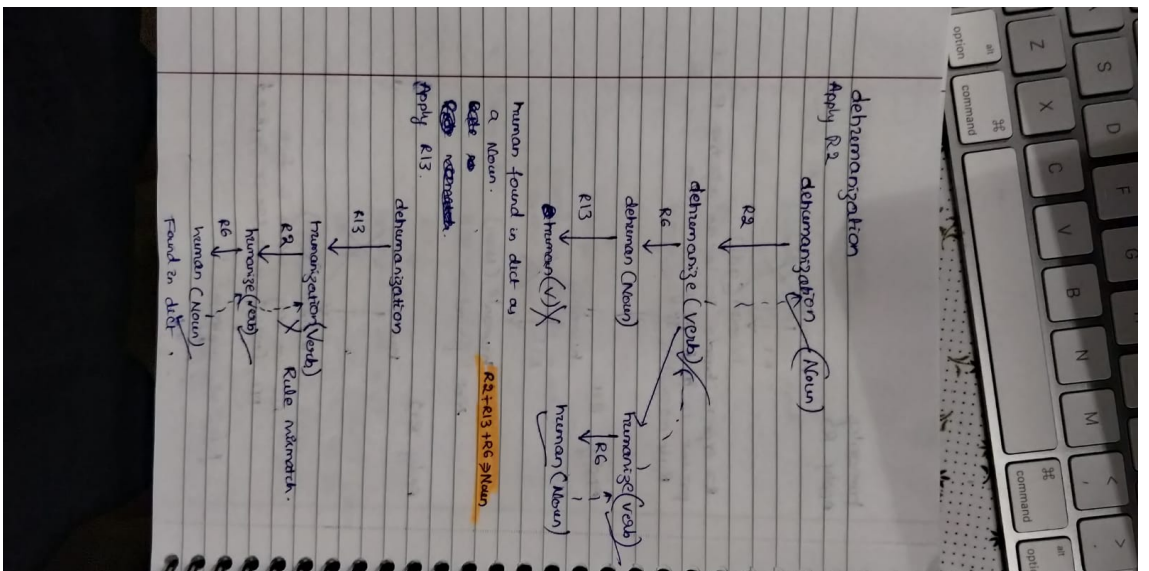 dehzemanization
Apply R2
dehumanization (Noun)
R2
dehumanize (verb)
R6
dehuman (Noun)
humanize (verb)
R13
R6
human (v) X
human (Noun)
human found in dict as
a Noun.
R2+R13+R6 ⇒ Noun
Apply R13.
dehumanization
R13
humanization (Verb)
R2
X Rule mixmatch.
humanize (verb)
R6
human (Noun)
Found in dict.
S
D
F
G
Z
X
C
V
B
N
M
<
>
alt
option
⌘
command
⌘
command
alt
opti